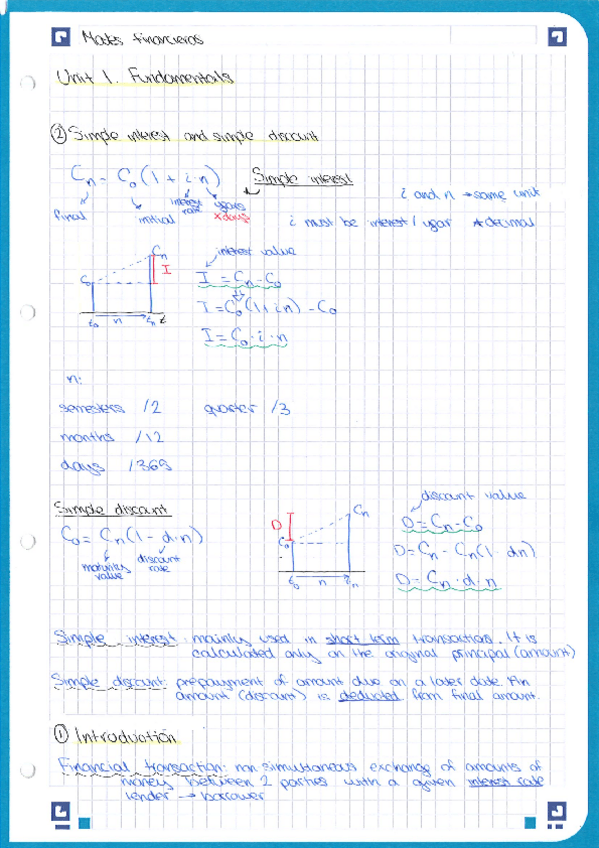 Mates financieras
Unit 1. Fundamentals
② Simple interest and simple discount
Cn = Co (1 + i · n) Simple interest
final initial interest rate years x days
i and n → same unit
i must be interest / year * decimal
Cn
I
Co
to n tn t
interest value
I = Cn - Co
I = Co (1 + in) - Co
I = Co · i · n
n:
semesters /2 quarter /3
months /12
days /365
Simple discount
Co = Cn (1 - d · n)
maturity value discount rate
D
Cn
Co
to n tn
discount value
D = Cn - Co
D = Cn - Cn (1 - dn)
D = Cn · d · n
Simple interest: mainly used in short term transaction. It is
calculated only on the original principal (amount)
Simple discount: prepayment of amount due on a later date. An
amount (discount) is deducted from final amount.
① Introduction
Financial transaction: non simultaneous exchange of amounts of
money between 2 parties with a given interest rate
lender → borrower